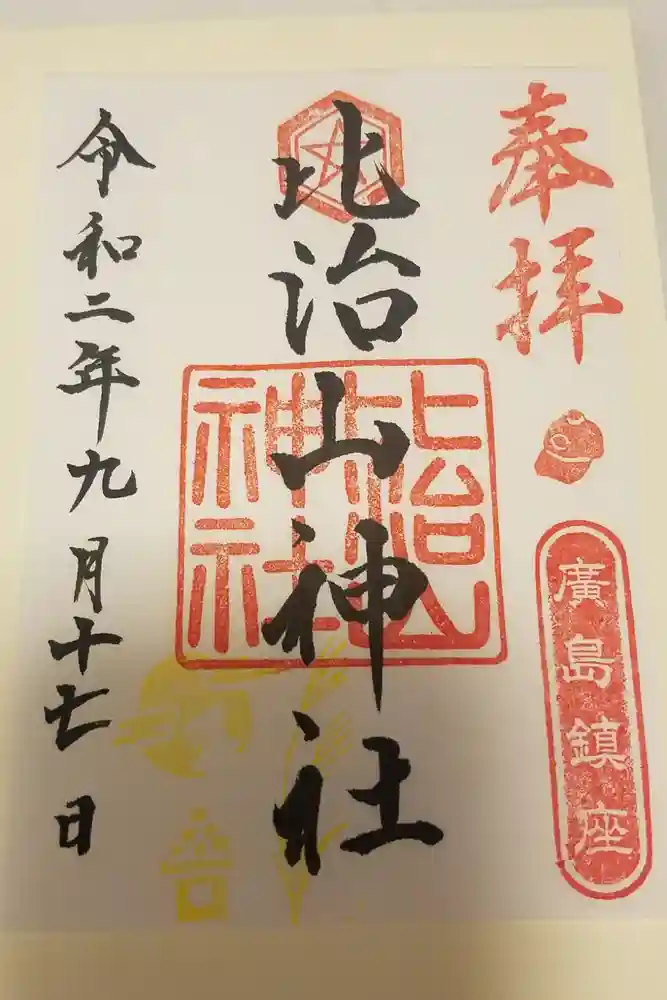 奉拝
C
廣島鎮座
比治山神社
比治山神社
令和二年九月十七日